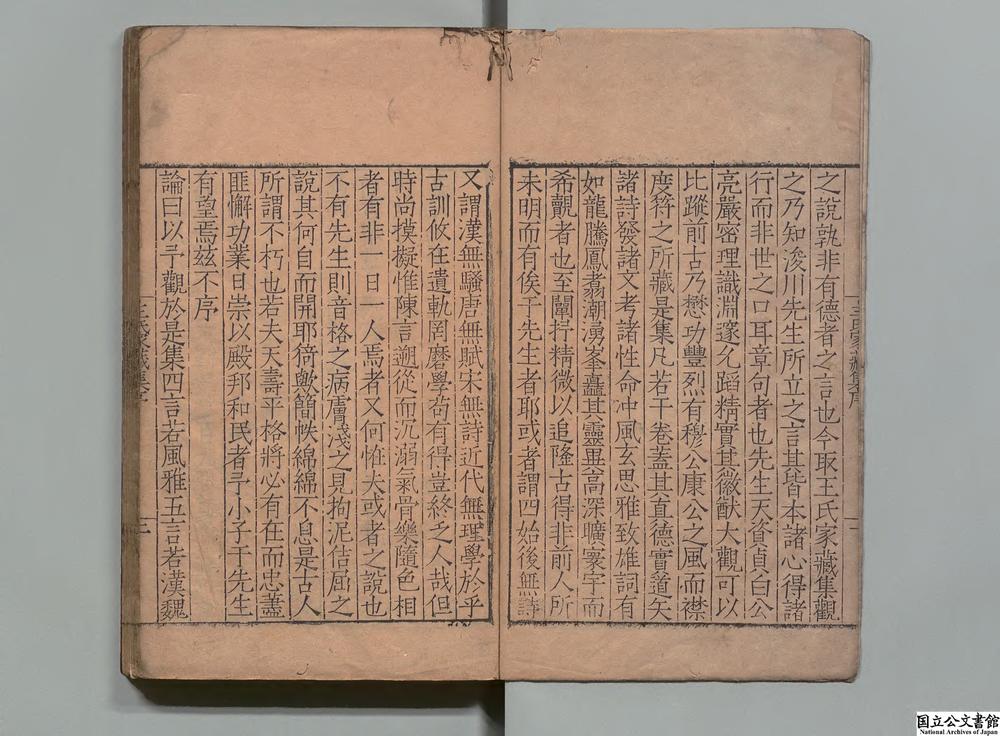 之說孰非有德者之言也今取王氏家藏集觀
之乃知浚川先生所立之言其皆本諸心得諸
行而非世之口耳章句者也先生天資貞白公
亮嚴密理識淵邃允蹈精實其徽猷大觀可以
比蹤前古乃懋功豐烈有穆公康公之風而襟
度符之所藏是集凡若干卷蓋其直德實道矢
諸詩發諸文考諸性命冲風玄思雅致雄詞有
如龍騰鳳翥潮湧峯矗其靈畀高深曠寰宇而
希覿者也至闡抒精微以追隆古得非前人所
未明而有俟于先生者耶或者謂四始後無詩
又謂漢無騷唐無賦宋無詩近代無理學於乎
古訓攸在遺軌罔磨學苟有得豈終之人哉但
時尚摸擬惟陳言遡從而沉溺氣骨樂隨色相
者有非一日一人焉者又何惟夫或者之說也
不有先生則音格之病膚淺之見拘泥佶屈之
說其何自而開耶猗歟簡帙綿綿不息是古人
所謂不朽也若夫天壽平格將必有在而忠藎
匪懈功業日崇以殿邦和民者予小子于先生
有望焉玆不序
論曰以予觀於是集四言若風雅五言若漢魏
王氏家藏集序
二